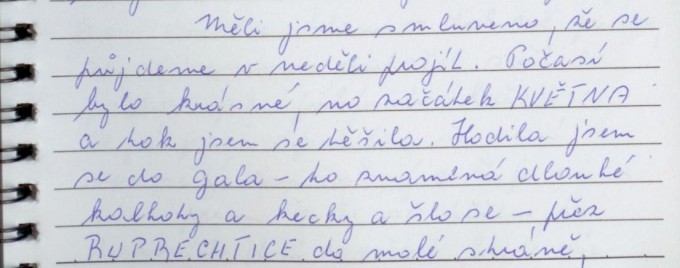 Měli jsme smluveno, že se
půjdeme v neděli projít. Počasí
bylo krásné, no začátek KVĚTNA
a tak jsem se těšila. Hodila jsem
se do gala - to znamená dlouhé
kalhoty a kecky a šlo se - přez
RUPRECHTICE do malé stráně,